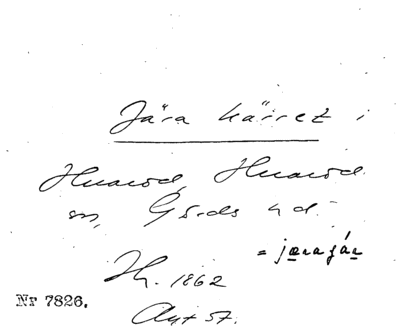 Jära käiret i
Huaröd, Huaröd
sn, Gärds hd.
= jæra jár
H. 1862
Nr 7826.
Akt 57.